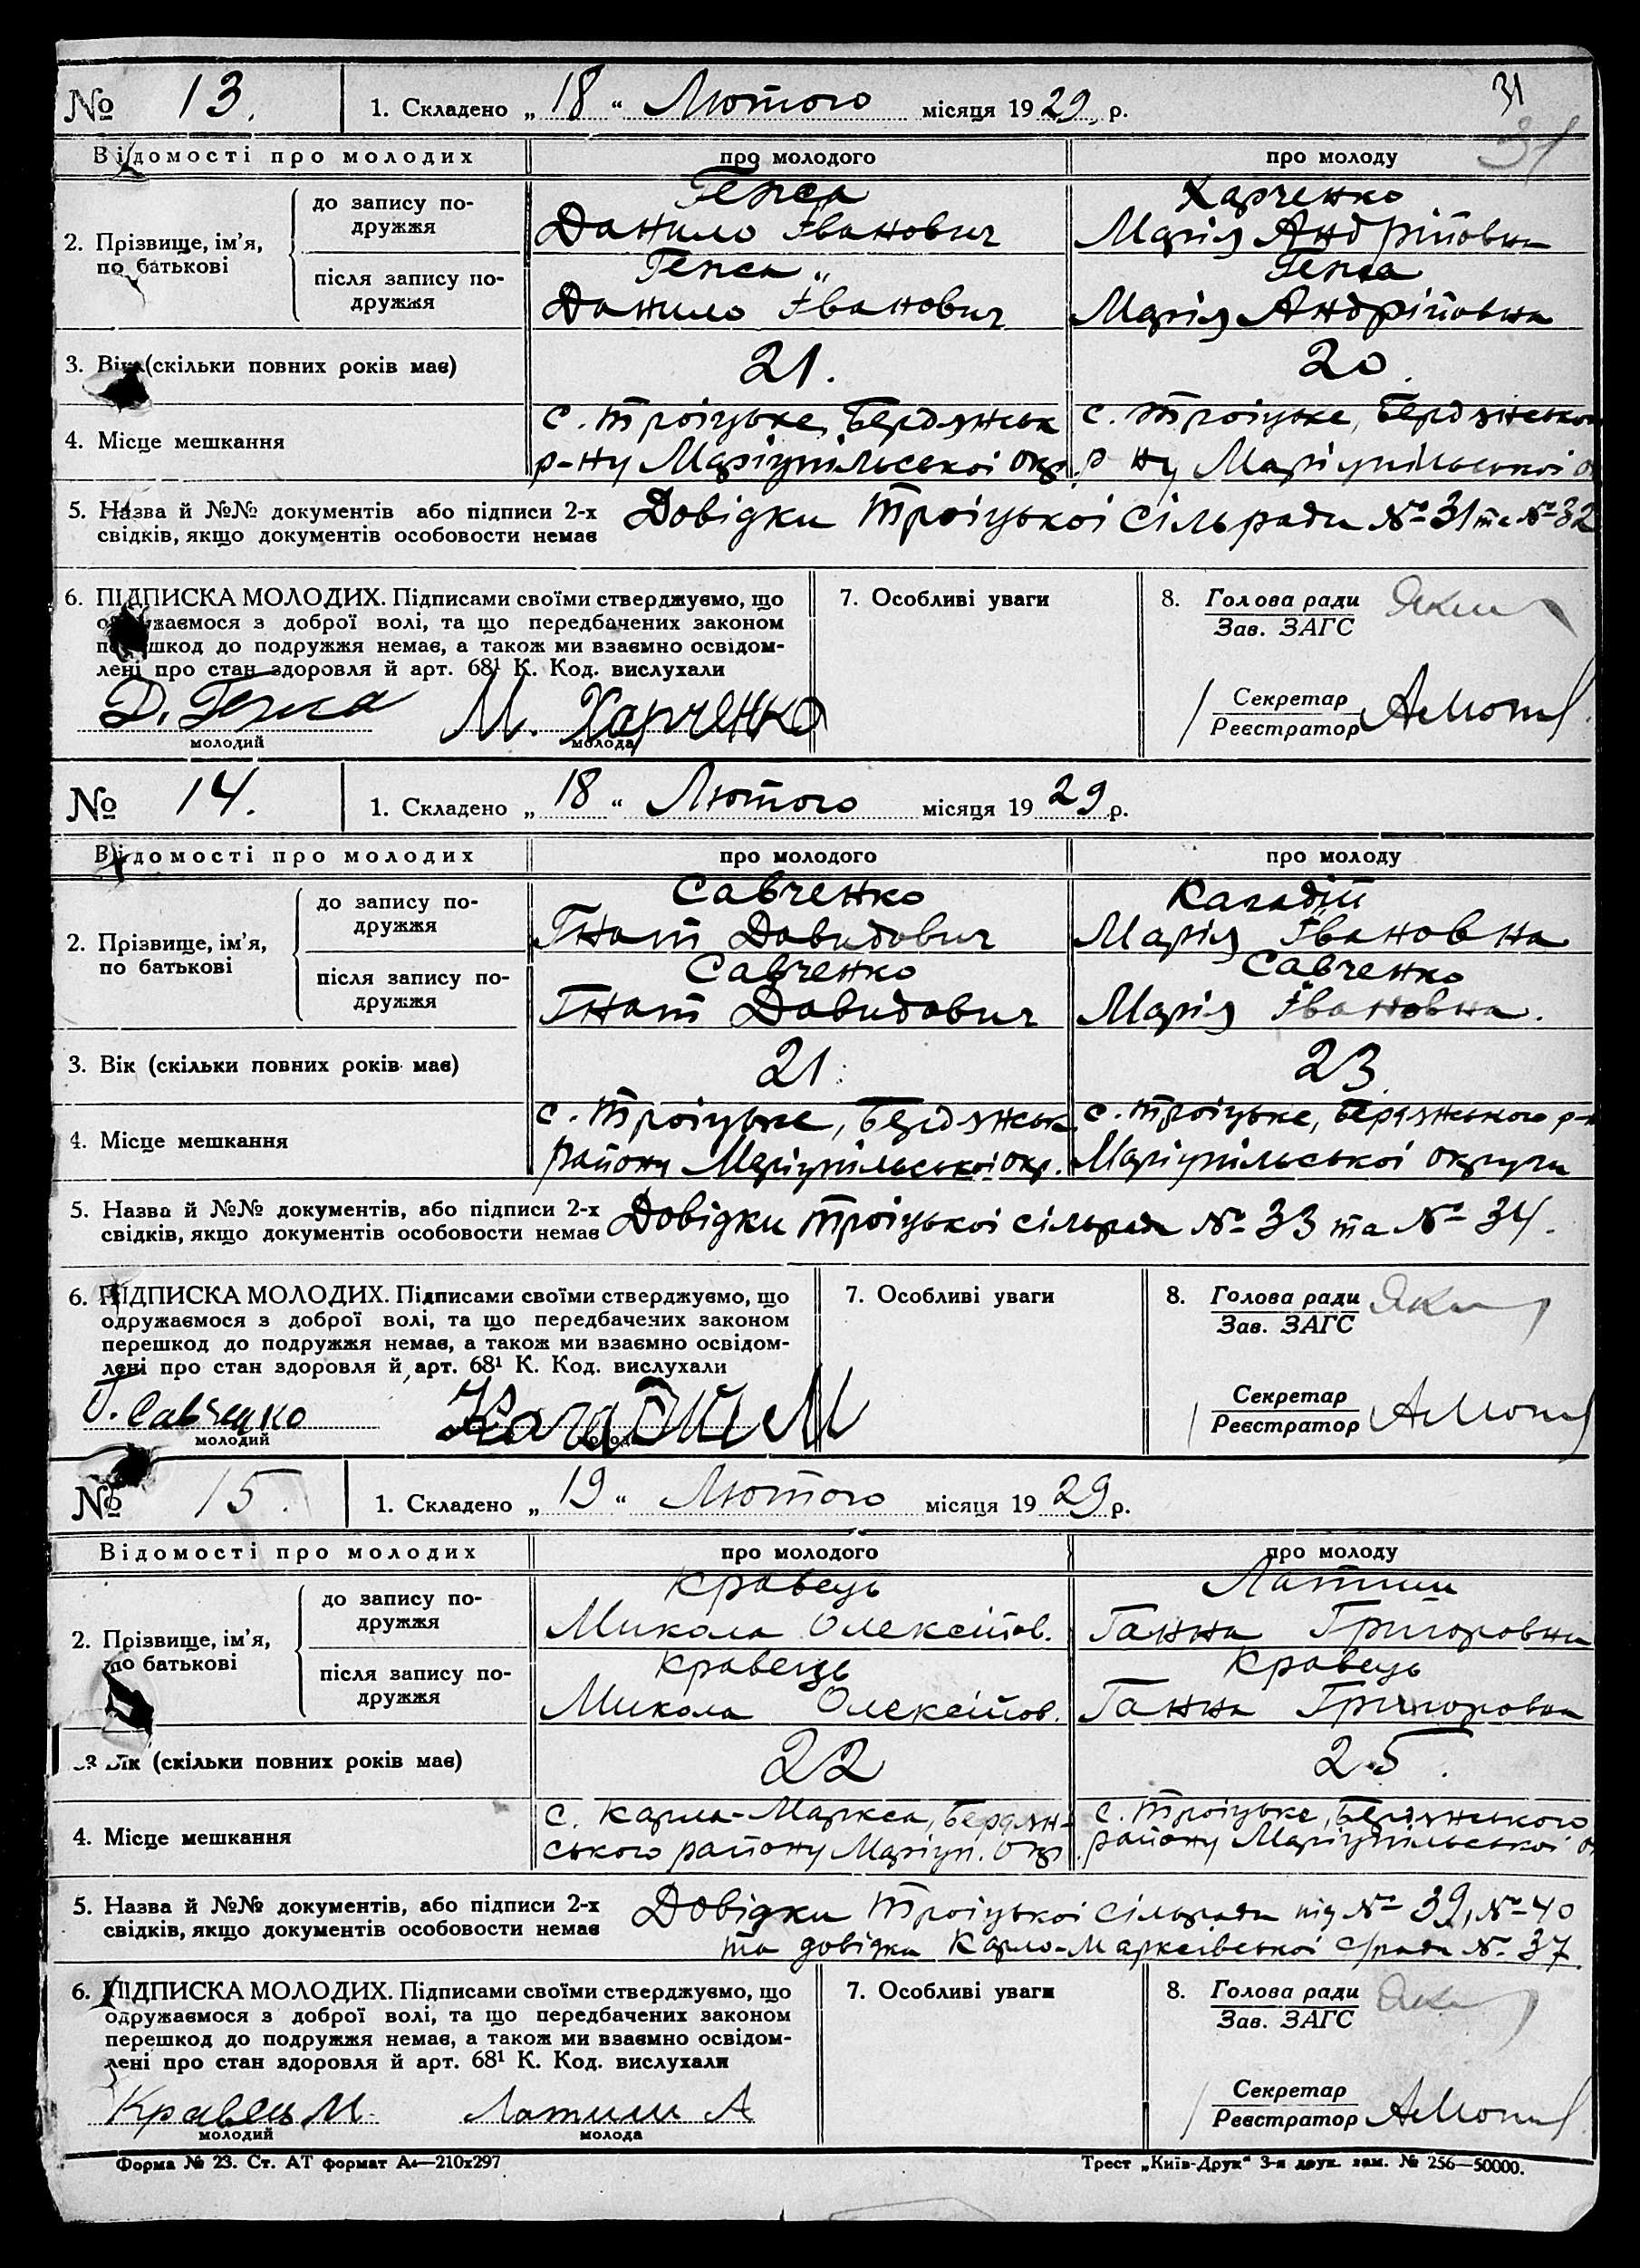 31
№ 13. 1. Складено „18“ Лютого місяця 1929 р.
31
Відомості про молодих про молодого про молоду
2. Прізвище, ім’я, по батькові
до запису подружжя
Данило Іванович
Харченко
Марія Андріївна
після запису подружжя
Данило Іванович
Марія Андріївна
3. Вік (скільки повних років має) 21. 20.
4. Місце мешкання
с. Троіцьке, Бердянськ с. Троіцьке, Бердянського
р-ну Маріупільськоі окр. р-ну Маріупільськоі
5. Назва й №№ документів або підписи 2-х
свідків, якщо документів особовости немає
Довідки Троіцькоі сільради № 31 та № 32
6. ПІДПИСКА МОЛОДИХ. Підписами своїми стверджуємо, що
одружаємося з доброї волі, та що передбачених законом
перешкод до подружжя немає, а також ми взаємно освідом-
лені про стан здоровля й арт. 68¹ К. Код. вислухали
7. Особливі уваги
8. Голова ради
Зав. ЗАГС
Секретар
Реєстратор
М. Харченко
молодий молода
№ 14. 1. Складено „18“ Лютого місяця 1929 р.
Відомості про молодих про молодого про молоду
2. Прізвище, ім’я, по батькові
до запису подружжя
Савченко Кагадій
Гнат Давидович Марія Івановна
після запису подружжя
Савченко Савченко
Гнат Давидович Марія Івановна.
3. Вік (скільки повних років має) 21. 23.
4. Місце мешкання
с. Троіцьке, Бердянськ с. Троіцьке, Бердянського р-н
району Маріупільськоі окр. Маріупільськоі округи
5. Назва й №№ документів, або підписи 2-х
свідків, якщо документів особовости немає
Довідки Троіцькоі сільради № 33 та № 34.
6. ПІДПИСКА МОЛОДИХ. Підписами своїми стверджуємо, що
одружаємося з доброї волі, та що передбачених законом
перешкод до подружжя немає, а також ми взаємно освідом-
лені про стан здоровля й арт. 68¹ К. Код. вислухали
7. Особливі уваги
8. Голова ради
Зав. ЗАГС
Секретар
Реєстратор
Г. Савченко Кагадій М
молодий
№ 15. 1. Складено „19“ Лютого місяця 1929 р.
Відомості про молодих про молодого про молоду
2. Прізвище, ім’я, по батькові
до запису подружжя
Кравець Латиш
Микола Олексійов. Ганна Григоровна
після запису подружжя
Кравець Кравець
Микола Олексійов. Ганна Григоровна
3. Вік (скільки повних років має) 22 25.
4. Місце мешкання
с. Карла-Маркса, Бердян- с. Троіцьке, Бердянського
ського району Маріуп. Окр. району Маріупільськоі
5. Назва й №№ документів, або підписи 2-х
свідків, якщо документів особовости немає
Довідки Троіцькоі сільради під № 39, № 40
та довідка Карло-Марксівськоі с/ради № 37.
6. ПІДПИСКА МОЛОДИХ. Підписами своїми стверджуємо, що
одружаємося з доброї волі, та що передбачених законом
перешкод до подружжя немає, а також ми взаємно освідом-
лені про стан здоровля й арт. 68¹ К. Код. вислухали
7. Особливі уваги
8. Голова ради
Зав. ЗАГС
Секретар
Реєстратор
Кравець М. Латиш А
молодий молода
Форма № 23. Ст. АТ формат А4—210х297 Трест „Київ-Друк“ 3-я друк. зам. № 256—50000.